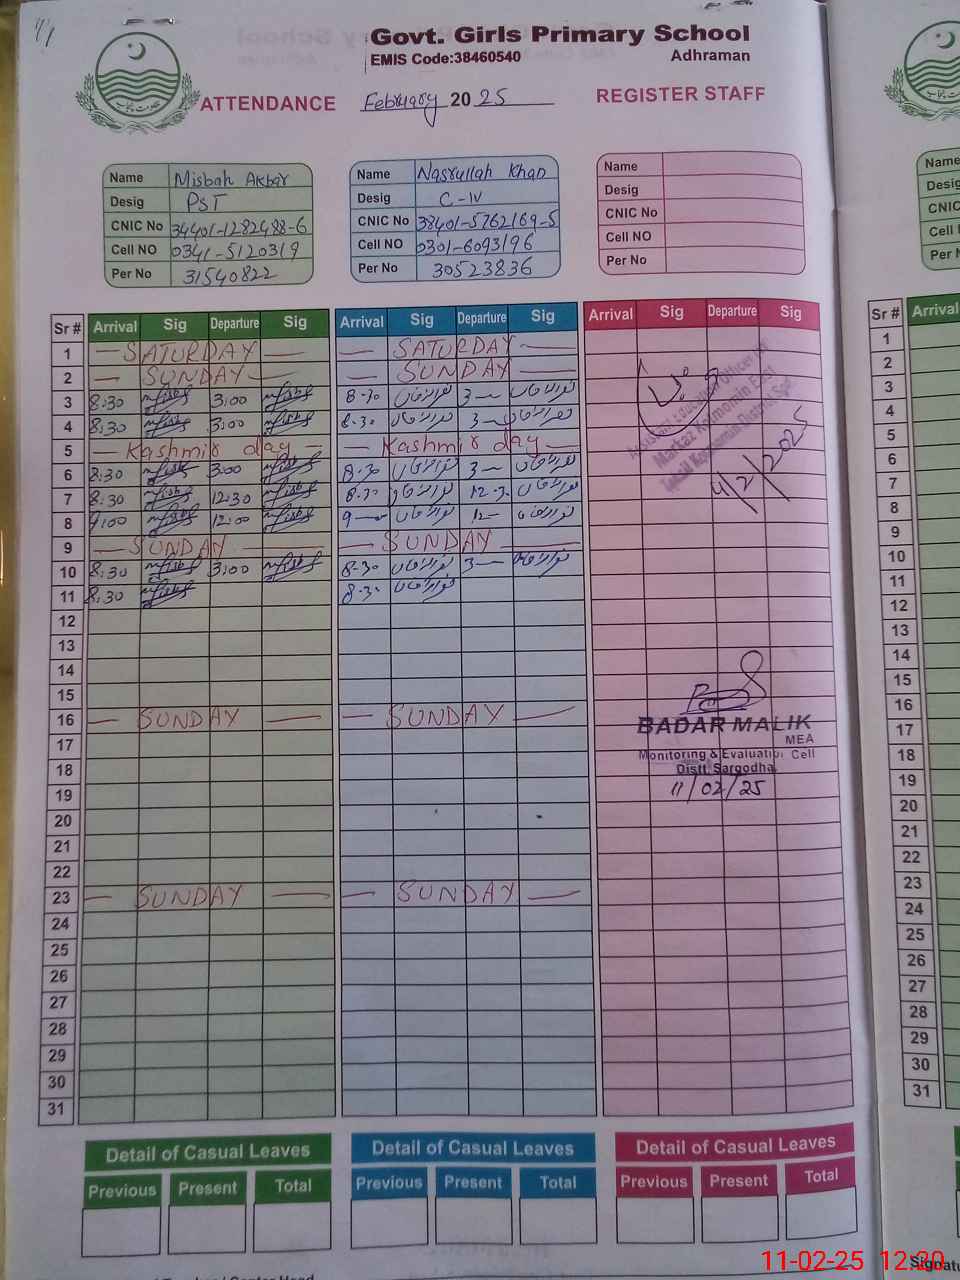 Govt. Girls Primary School
EMIS Code:38460540 Adhraman
ATTENDANCE February 2025 REGISTER STAFF
Name Misbah Akbar
Desig PST
CNIC No 34401-1282488-6
Cell NO 0341-5120319
Per No 31540822
Name Nasrullah Khan
Desig C-IV
CNIC No 38401-5762169-5
Cell NO 0301-6093196
Per No 30523836
Name
Desig
CNIC No
Cell NO
Per No
Sr # Arrival Sig Departure Sig Arrival Sig Departure Sig Arrival Sig Departure Sig
1 — SATURDAY — — SATURDAY —
2 — SUNDAY — — SUNDAY —
3 8:30 3:00 8-30 3—
4 8:30 3:00 8-30 3—
5 — Kashmir day — — Kashmir day —
6 8:30 3:00 8-30 3—
7 8:30 12:30 8-30 12-30
8 9:00 12:00 9— 12—
9 — SUNDAY — — SUNDAY —
10 8:30 3:00 8-30 3—
11 8:30 8-30
12
13
14
15
16 — SUNDAY — — SUNDAY —
17
18
19
20
21
22
23 — SUNDAY — — SUNDAY —
24
25
26
27
28
29
30
31
Assistant Education Officer
Markaz Kotmomin East
4/2/2025
BADAR MALIK
MEA
Monitoring & Evaluation Cell
Distt. Sargodha
11/02/25
Detail of Casual Leaves Detail of Casual Leaves Detail of Casual Leaves
Previous Present Total Previous Present Total Previous Present Total
Name
Desig
CNIC
Cell
Per
Sr # Arrival
1
2
3
4
5
6
7
8
9
10
11
12
13
14
15
16
17
18
19
20
21
22
23
24
25
26
27
28
29
30
31
11-02-25 12:20